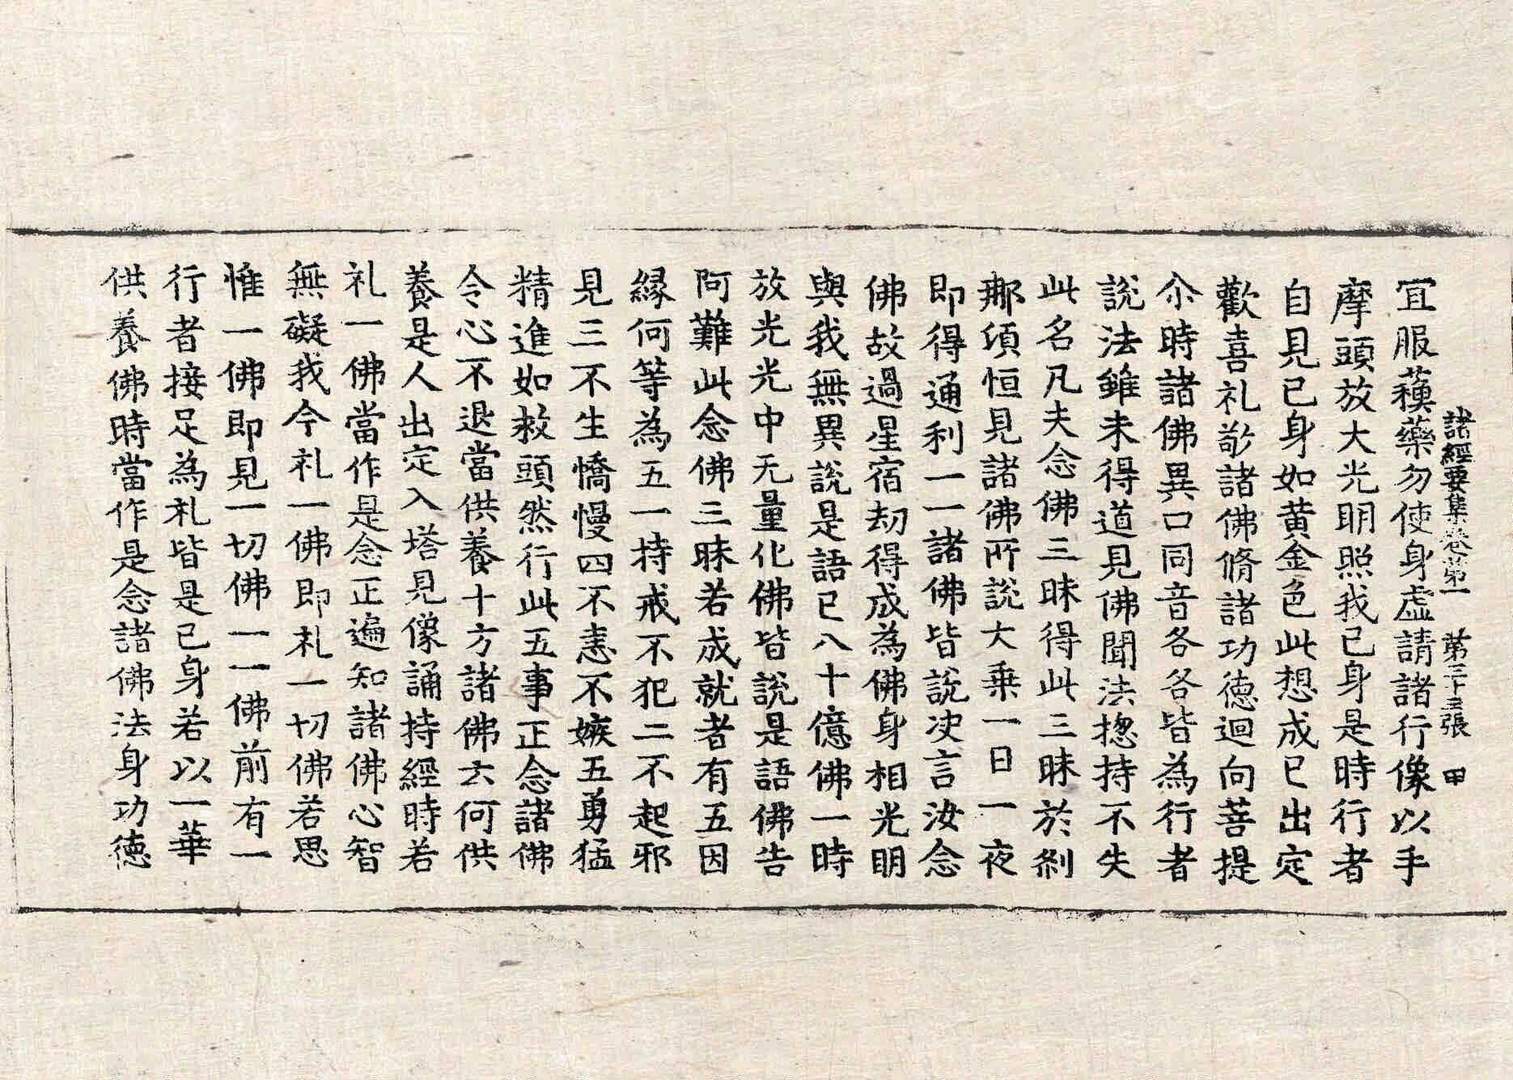 諸經要集卷第一 第三十三張 甲
冝服藥藥勿使身虛請諸行像以手
摩頭放大光明照我已身是時行者
自見已身如黄金色此想成已出定
歡喜礼敬諸佛脩諸功德迴向菩提
尒時諸佛異口同音各各皆為行者
說法雖未得道見佛聞法揔持不失
此名凡夫念佛三昧得此三昧於剎
那湏恒見諸佛所說大乗一日一夜
即得通利一一諸佛皆說决言汝念
佛故過星宿刧得成為佛身相光明
與我無異說是語已八十億佛一時
放光光中无量化佛皆說是語佛告
阿難此念佛三昧若成就者有五因
緣何等為五一持戒不犯二不起邪
見三不生憍慢四不恚不嫉五勇猛
精進如救頭然行此五事正念諸佛
令心不退當供養十方諸佛云何供
養是人出定入塔見像誦持經時若
礼一佛當作是念正遍知諸佛心智
無礙我今礼一佛即礼一切佛若思
惟一佛即見一切佛一一佛前有一
行者接足為礼皆是已身若以一華
供養佛時當作是念諸佛法身功德